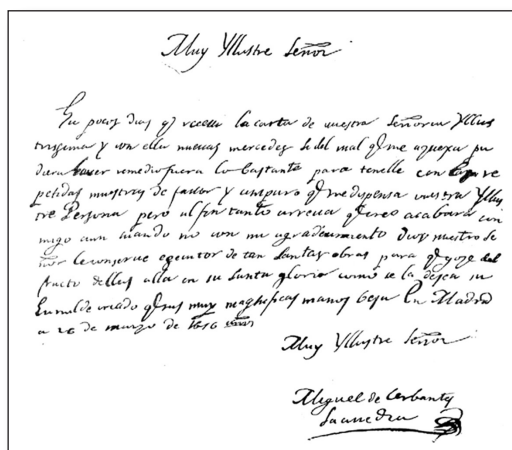 Muy Yllustre Señor
pocos dias q̃ receui la carta de vuestra Señoria Yllus
trissima y con ella nueuas mercedes si del mal q̃ me aquexa pu
diera hauer remedio fuera lo bastante para tenelle con re
petidas muestras de fauor y amparo q̃ me dispensa vuestra Yllus
tre Persona pero al fin tanto arrecia q̃ creo acabara con
migo aun cuando no con mi agradecimiento Dios nuestro Se
ñor le conserue egecutor de tan santas obras para q̃ goze del
fructo dellas alla en su santa gloria como se la desea su
umilde criado q̃ sus muy magnificas manos besa En Madrid
a 26 de marzo de 1616 años
Muy Yllustre Señor
Miguel de Cerbantes
Saauedra